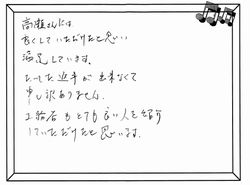 高瀬さんには
良くしていただけたと思い
満足しています。
たいした返事が出来なくて
申し訳ありません。
工務店もとても良い人を紹介
していただけたと思います。